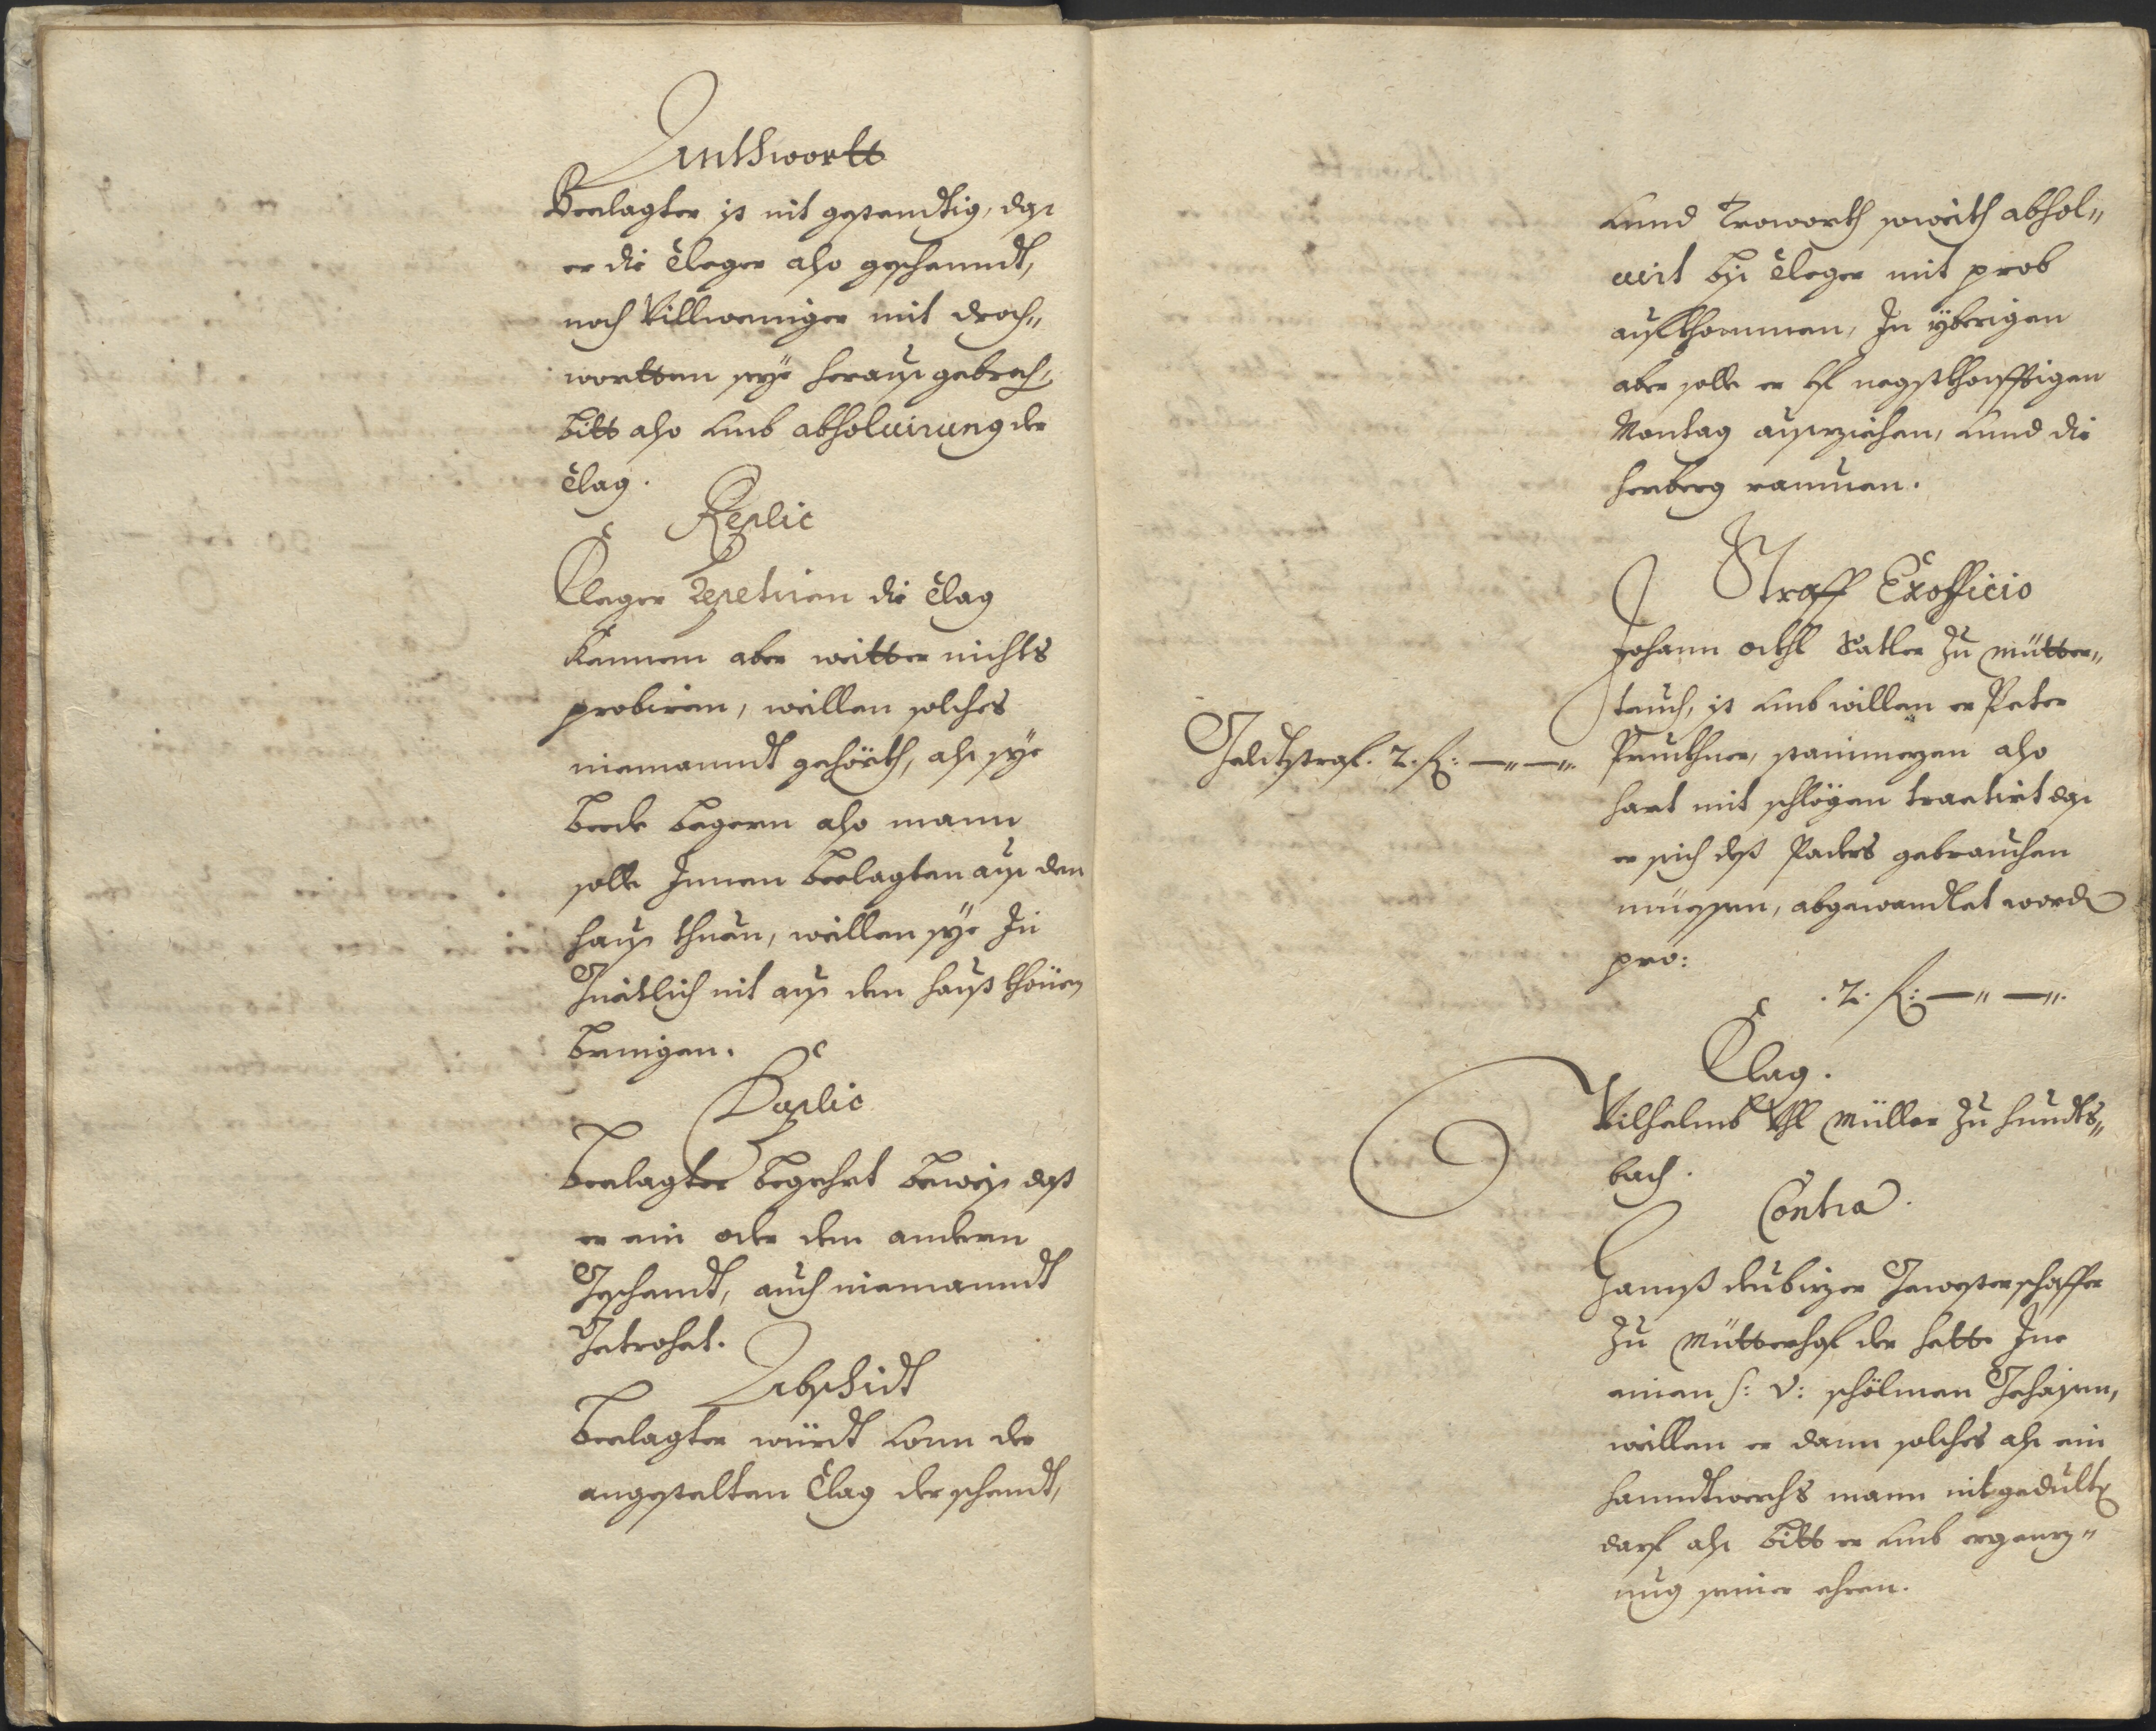 Anthwortt
Beclagter ist nit gestendtig, das
er die Cleger also geschenndt,
noch Villweniger mit droch„
wortten seye heraus gebroch,
bitt also umb abholuirung der
Clag.
Replic
Cleger repetiren die Clag
kennen aber weitter nichts
probiren, weillen solches
niemanndt gehörth, als sye
beede begern also mann
solle Innen beclagten aus den
haus thuen, weillen sye In
Guetlich nit aus dem hauß khönen
bringen.
Duplic
Beclagter begehrt beweis daß
er ein oder den andern
Geschendt, auch niemanndt
Getrohet.
Abschidt
Beclagter würdt vonn der
angestelten Clag der schendt,
unnd Troworth soweith abhol„
uirt bis Cleger mit prob
aufkhommen, In yberigen
aber solle er uf negstkhonfftigen
Montag ausziehen, unnd die
herberg raumen.
Straff Exofficio
Johann Satler zu Mütter„
teuch, ist umb willen er Peter
Geldtstraf. 2. fl: —„ —„.
Prukhner, stainmezen also
hart mit schlögen tractirt das
er sich deß Paders gebrauchen
müessen, abgewandlet word
pro:
.2. fl: —„ —„.
Clag.
Wilhelmb Uhl Müller zu Hundts„
bach.
Contra.
Hannß Gewester schaffer
zu Mütterhof der hette Ine
einen s: v: schölmen Gehaisen,
weillen er dann solches als ein
hanndtwerchs mann nit gedulten
darf als bitt er umb erganz„
ung seiner ehren.